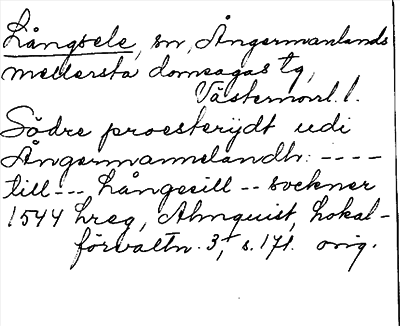 Långsele, sn, Ångermanlands
mellersta domsagas tg,
Västernorrl. l.
Södre proesterijdt udi
Ångermannelandh: ----
till --- Långesill -- sockner
1544 hreg, Almquist, Lokal-
förvaltn. 3, s. 171. orig.